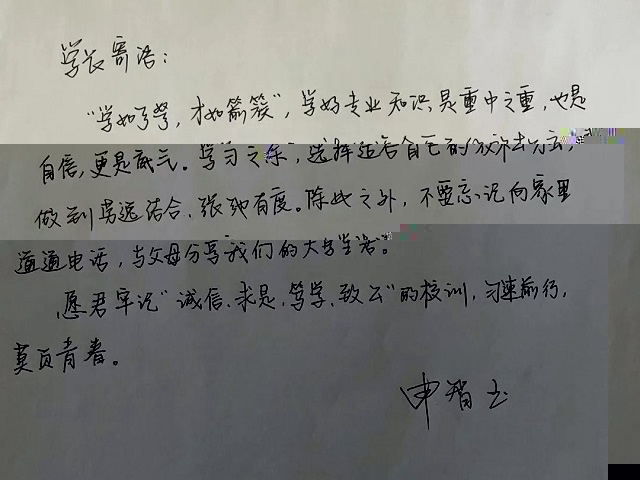 学长寄语：
"学如弓弩，才如箭簇"，学好专业知识是重中之重，也是
自信，更是底气。学习之余，选择适合自己的
做到劳逸结合、张弛有度。除此之外，不要忘记向家里
通通电话，与父母分享我们的大学生活。
愿君牢记"诚信、求是、笃学、致公"的校训，匀速前行，
莫负青春。
申智